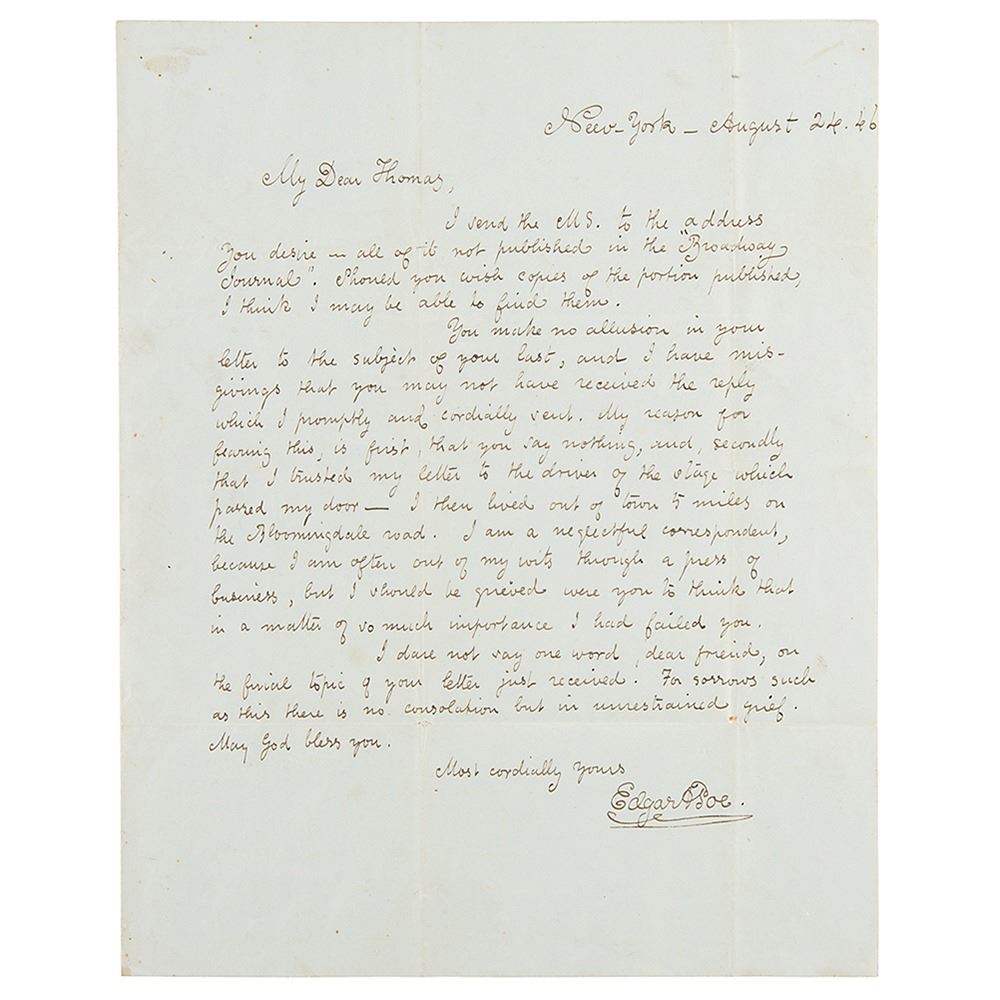 New-York — August 24. 46
My Dear Thomas,
I send the MS. to the address
you desire — all of it not published in the "Broadway
Journal". Should you wish copies of the portion published,
I think I may be able to find them.
You make no allusion in your
letter to the subject of your last, and I have mis-
givings that you may not have received the reply
which I promptly and cordially sent. My reason for
fearing this, is first, that you say nothing, and, secondly
that I trusted my letter to the driver of the stage which
passed my door — I then lived out of town 5 miles on
the Bloomingdale road. I am a neglectful correspondent,
because I am often out of my wits through a press of
business, but I should be grieved were you to think that
in a matter of so much importance I had failed you.
I dare not say one word, dear friend, on
the final topic of your letter just received. For sorrows such
as this there is no consolation but in unrestrained grief.
May God bless you.
Most cordially yours
Edgar A Poe.